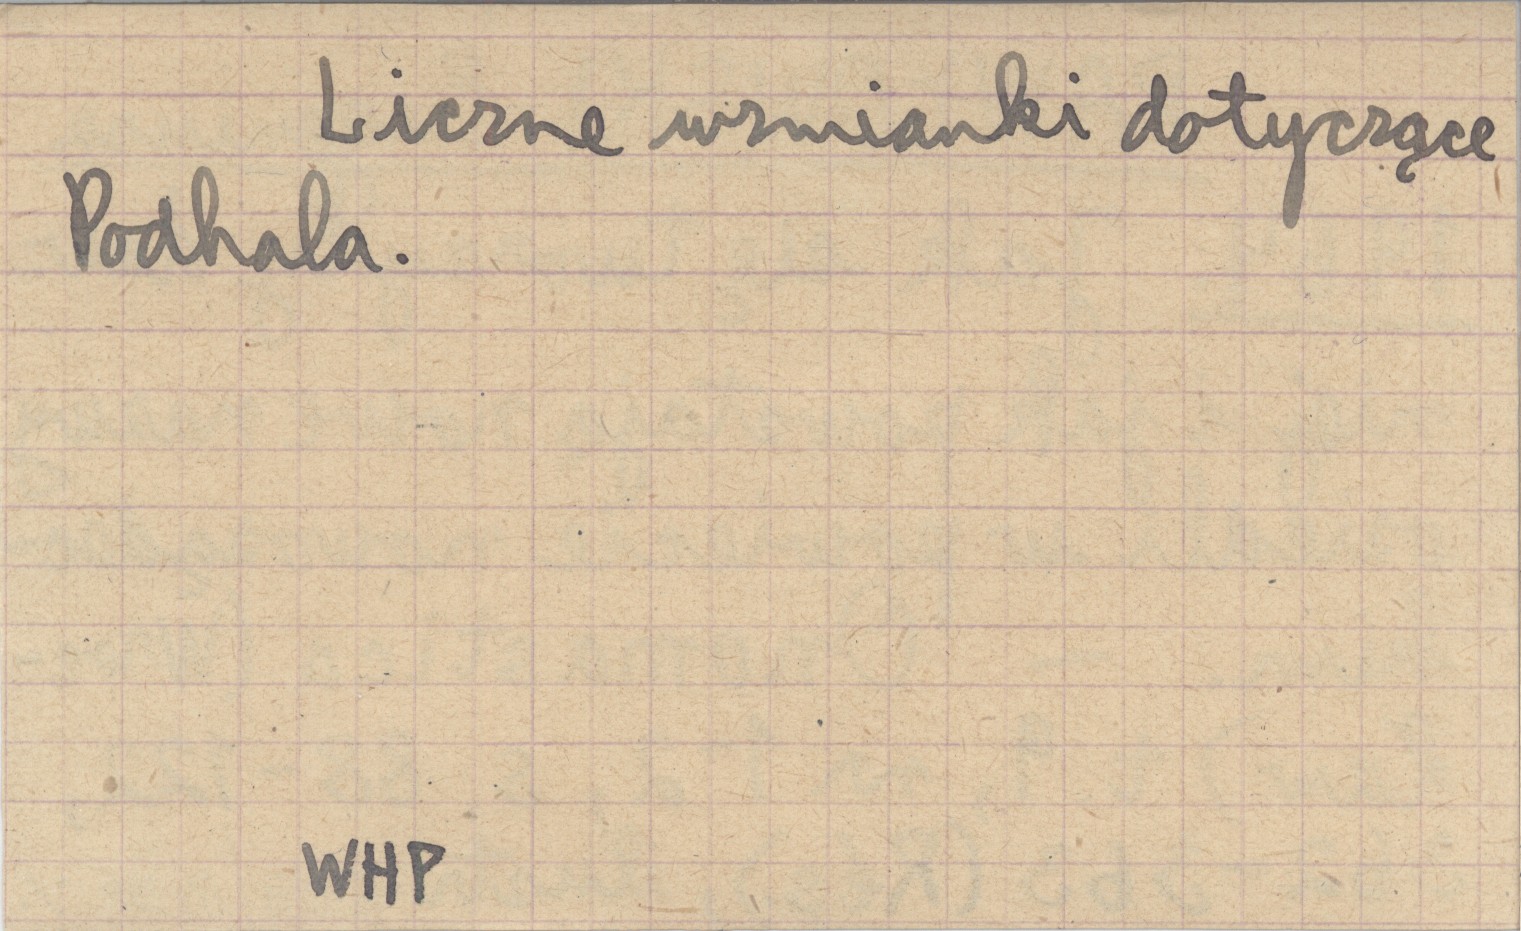 Liczne wzmianki dotyczące
Podhala.
WHP